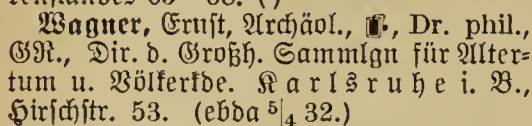 Wagner, Ernst, Archäol., Dr. phil.,
GR., Dir. d. Großh. Sammlgn für Alter-
tum u. Völkerkde. Karlsruhe i. B.,
Hirschstr. 53. (ebda 5|4 32.)